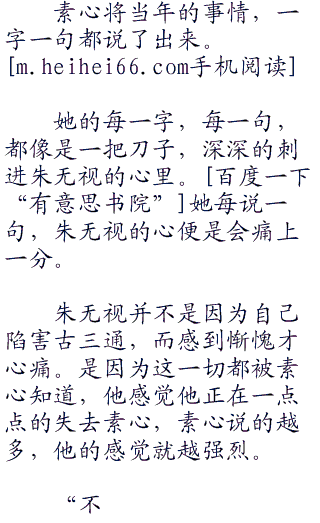 素心将当年的事情，一
字一句都说了出来。
[m.heihei66.com手机阅读]
她的每一字，每一句，
都像是一把刀子，深深的刺
进朱无视的心里。[百度一下
“有意思书院”]她每说一
句，朱无视的心便是会痛上
一分。
朱无视并不是因为自己
陷害古三通，而感到惭愧才
心痛。是因为这一切都被素
心知道，他感觉他正在一点
点的失去素心，素心说的越
多，他的感觉就越强烈。
“不